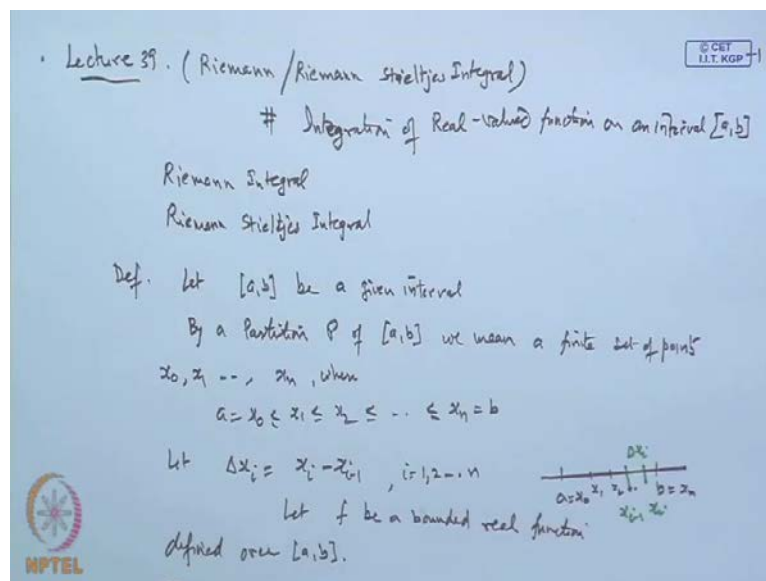 . Lecture 39. (Riemann/Riemann Stieltjes Integral)
© CET
I.I.T. KGP
# Integration of Real-valued function on an interval [a,b]
Riemann Integral
Riemann Stieltjes Integral
Def. Let [a,b] be a given interval
By a Partition P of [a,b] we mean a finite set of points
x₀, x₁ --, xₙ, when
a = x₀ ≤ x₁ ≤ x₂ ≤ -- ≤ xₙ = b
Let Δxᵢ = xᵢ - xᵢ₋₁, i=1,2--n
Δxᵢ
a=x₀ x₁ x₂ .. b=xₙ
xᵢ₋₁ xᵢ
Let f be a bounded real function
defined over [a,b].
NPTEL